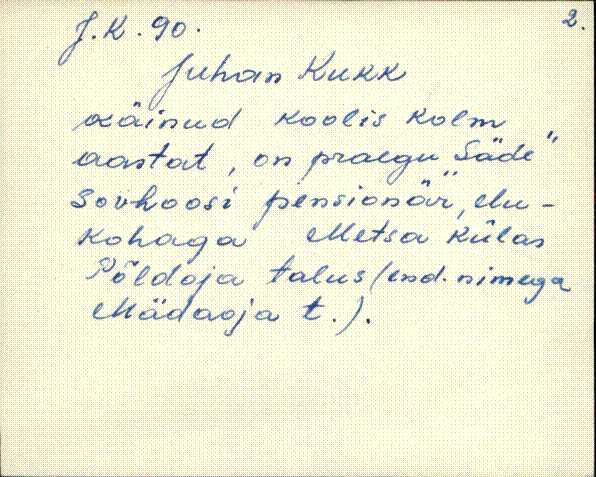 2.
J.K. 90.
Juhan Kukk
käinud koolis kolm
aastat, on praegu "Säde"
sovhoosi pensionär, elu-
kohaga Metsa külas
Põldoja talus (end. nimega
Mädaoja t.).